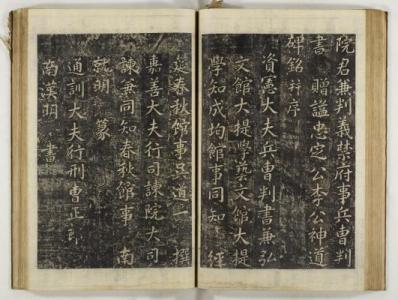 院君兼判義禁府事兵曹判
書 贈謚忠定公李公神道
碑銘并序
資憲大夫兵曹判書兼弘
文館大提學藝文館大提
學知成均館事同知 經
筵春秋館事吳道一 撰
嘉善大夫行司諫院大司
諫兼同知春秋館事 南
就明 篆
通訓大夫行刑曹正郎
南漢明 書